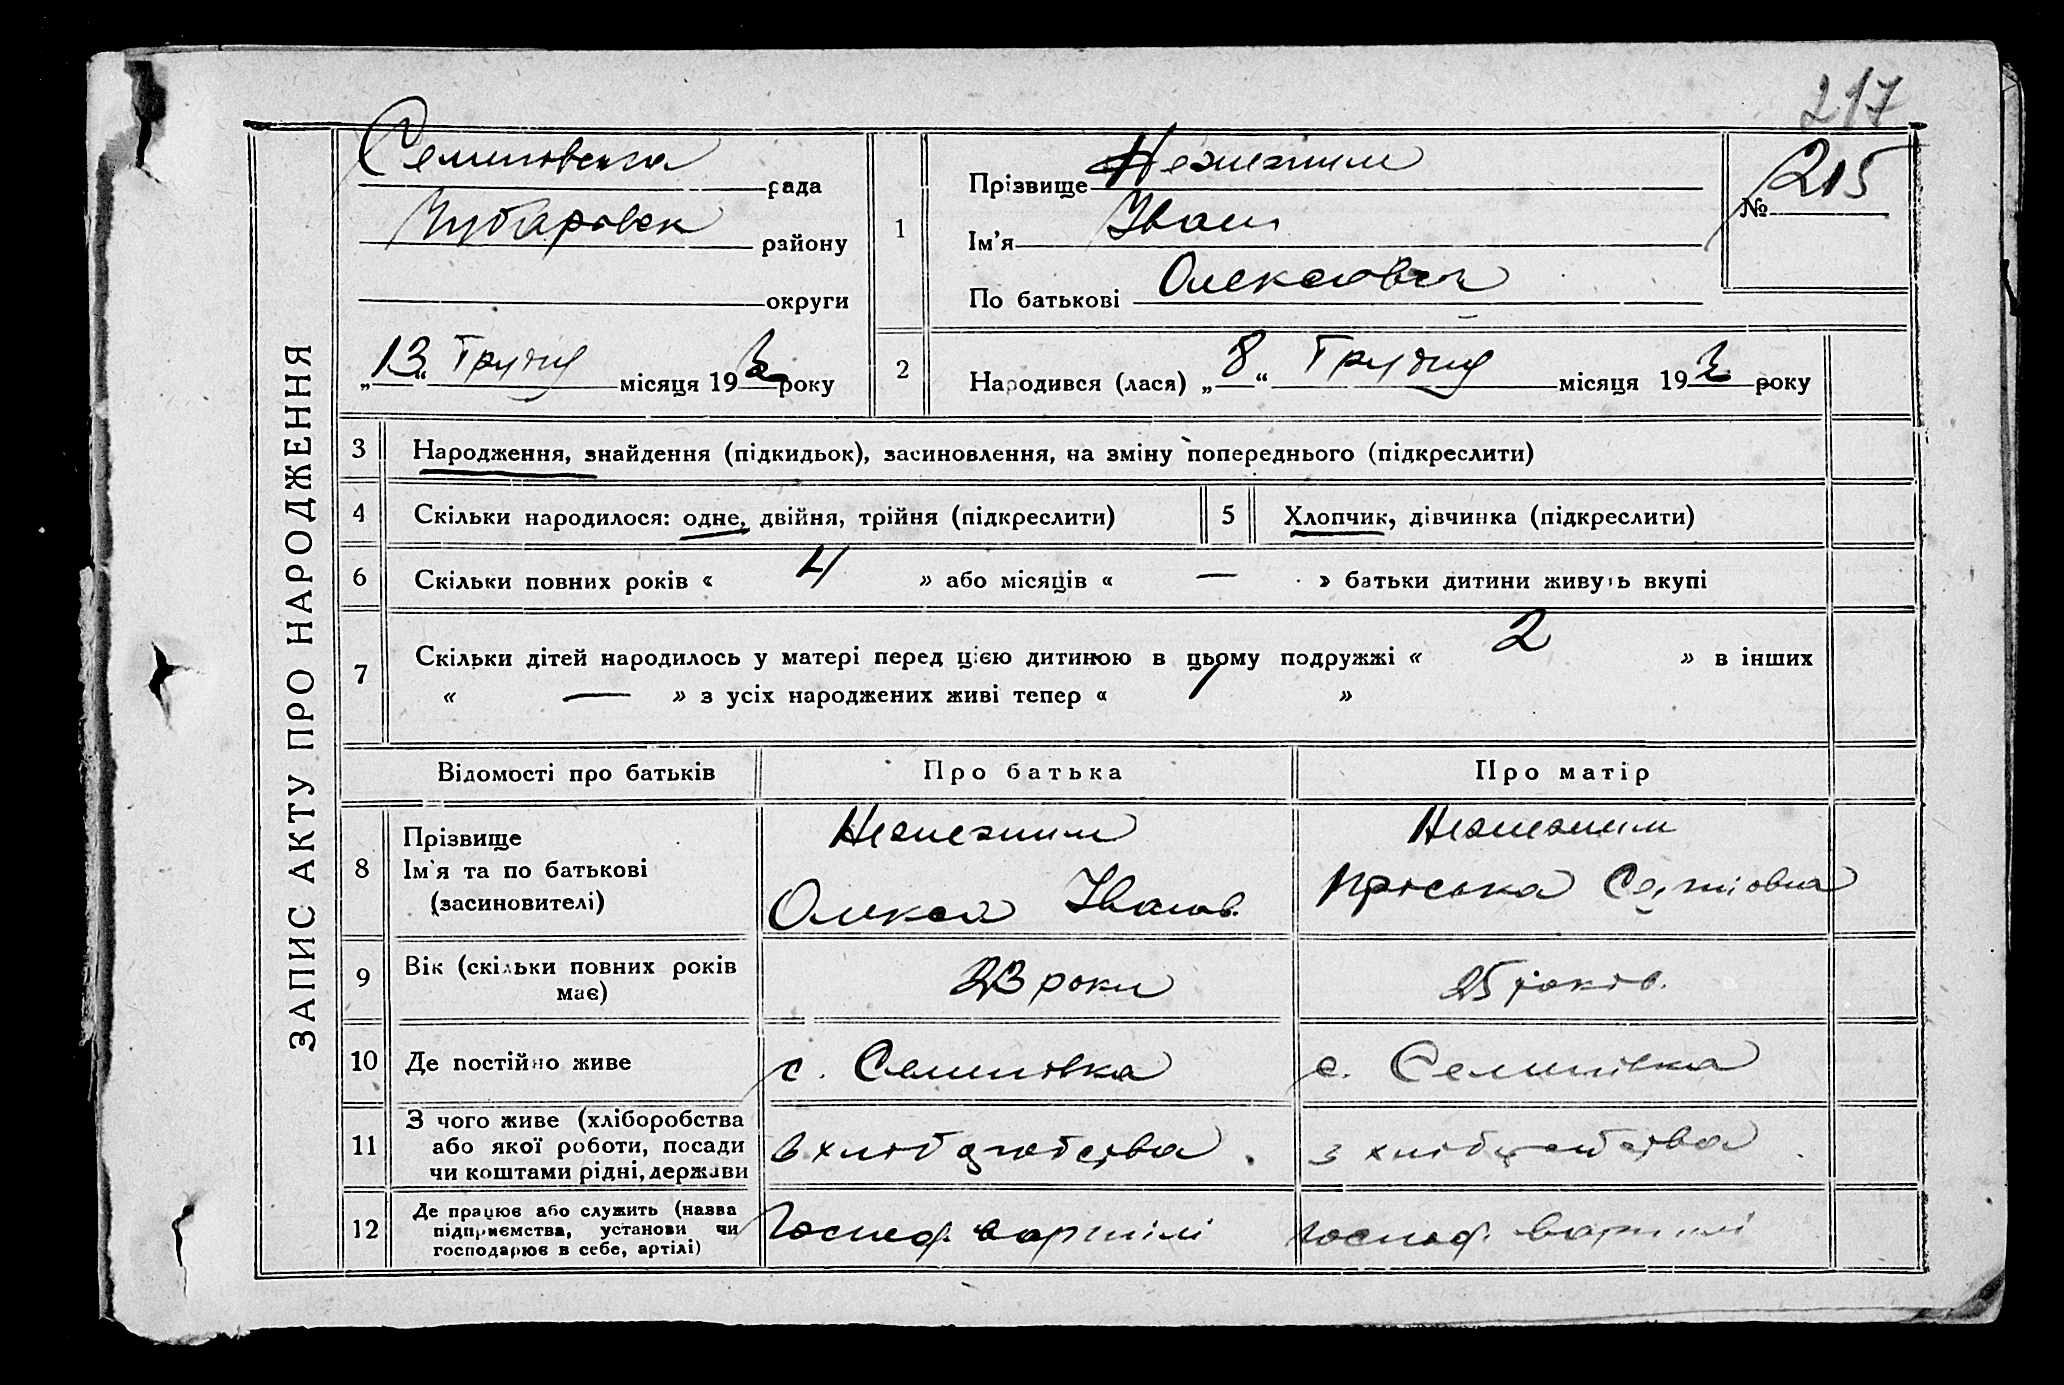 217
ЗАПИС АКТУ ПРО НАРОДЖЕННЯ
Семенівська рада
Чубаровск району
округи
„13“ Грудня місяця 19 року
1
Прізвище
Ім'я Іван
По батькові Олексієвич
№ 215
2
Народився (лася) „8“ Грудня місяця 19 року
3 Народження, знайдення (підкидьок), засиновлення, на зміну попереднього (підкреслити)
4 Скільки народилося: одне, двійня, трійня (підкреслити)
5 Хлопчик, дівчинка (підкреслити)
6 Скільки повних років « 4 » або місяців « — » батьки дитини живуть вкупі
7 Скільки дітей народилось у матері перед цією дитиною в цьому подружжі « 2 » в інших
« — » з усіх народжених живі тепер « 1 »
Відомості про батьків
Про батька
Про матір
8
Прізвище
Ім'я та по батькові
(засиновителі)
Олекса Іванов.
Пріська
9
Вік (скільки повних років
має)
23 роки
25 років.
10 Де постійно живе
с. Семенівка
с. Семенівка
11
З чого живе (хліборобства
або якої роботи, посади
чи коштами рідні, держави
з хліборобства.
з хліборобства.
12
Де працює або служить (назва
підприємства, установи чи
господарює в себе, артілі)
Господ. в артілі
господ. в артілі